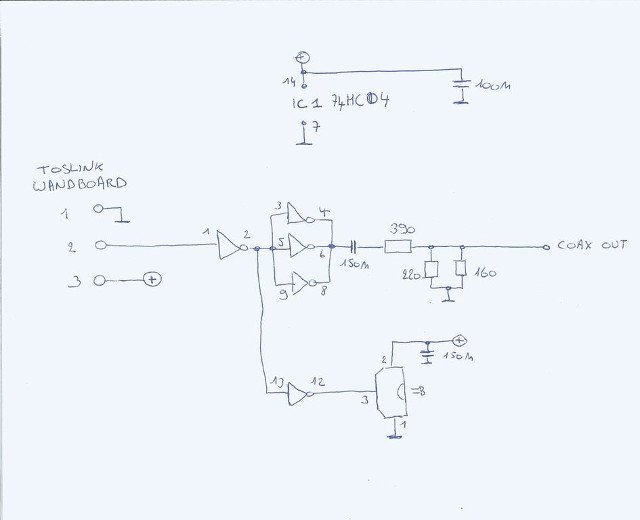 +
14
100M
IC1 74HC04
7
TOSLINK
WANDBOARD
1
2
3
+
1
2
3
4
5
6
9
8
150M
390
220
160
COAX OUT
13
12
2
+
150M
3
1